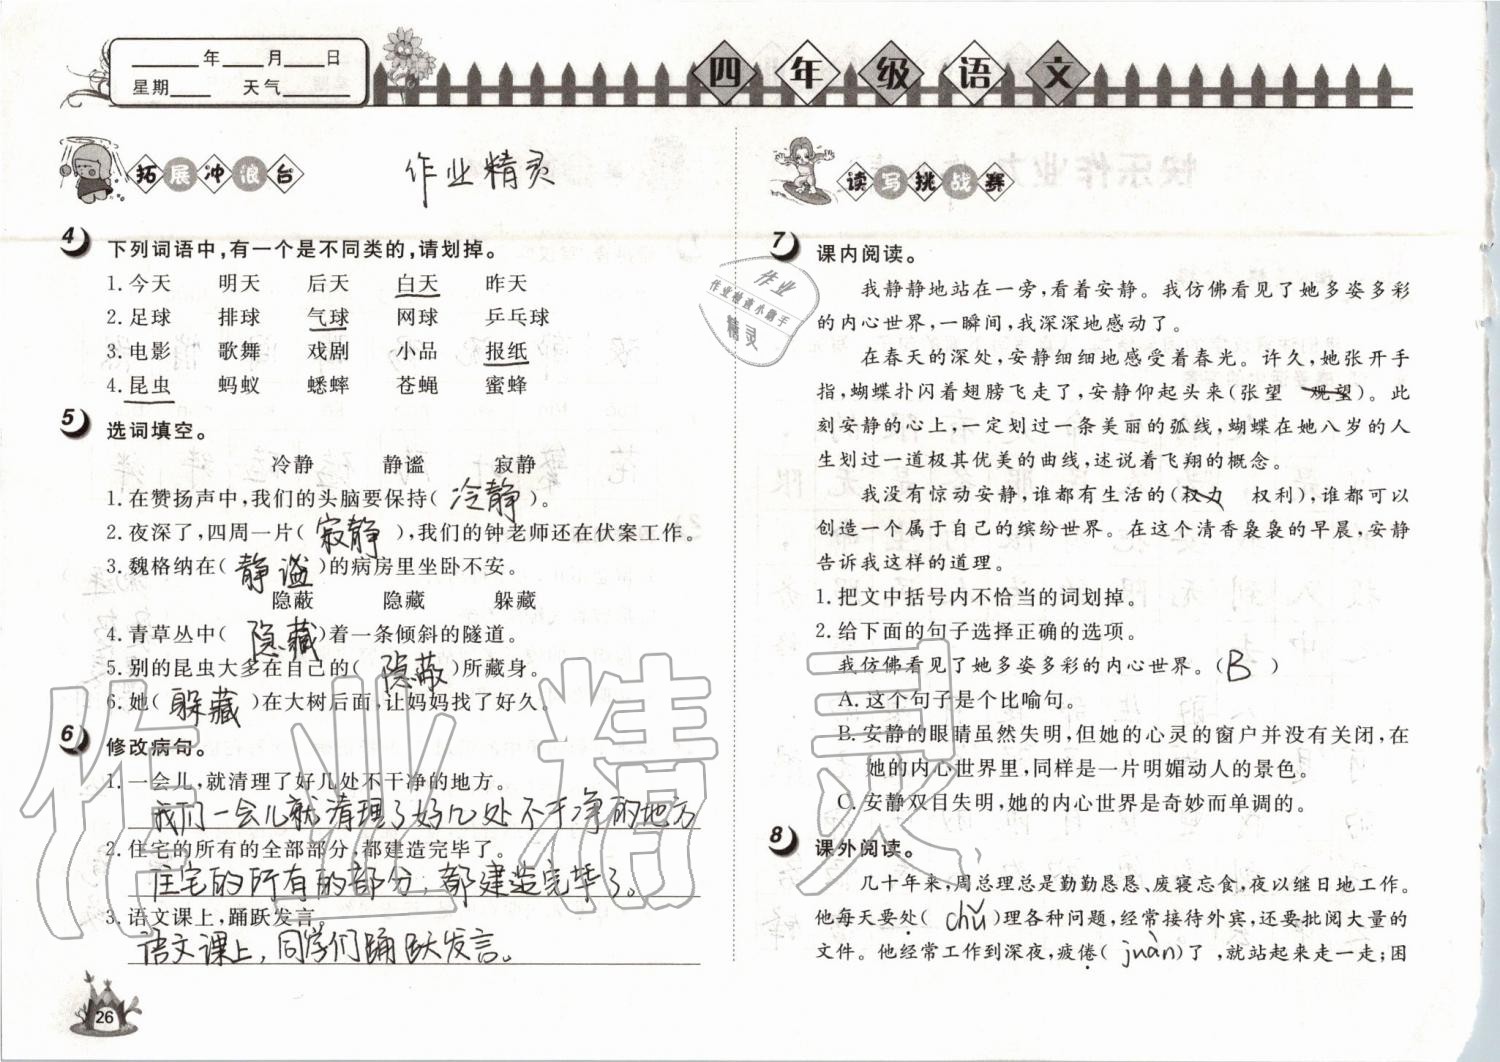 ____年____月____日
星期____ 天气______
四年级语文
拓展冲浪台
作业精灵
4 下列词语中,有一个是不同类的,请划掉。
1.今天 明天 后天 白天 昨天
2.足球 排球 气球 网球 乒乓球
3.电影 歌舞 戏剧 小品 报纸
4.昆虫 蚂蚁 蟋蟀 苍蝇 蜜蜂
5 选词填空。
冷静 静谧 寂静
1.在赞扬声中,我们的头脑要保持( 冷静 )。
2.夜深了,四周一片( 寂静 ),我们的钟老师还在伏案工作。
3.魏格纳在( 静谧 )的病房里坐卧不安。
隐蔽 隐藏 躲藏
4.青草丛中( 隐藏 )着一条倾斜的隧道。
5.别的昆虫大多在自己的( 隐蔽 )所藏身。
6.她( 躲藏 )在大树后面,让妈妈找了好久。
6 修改病句。
1.一会儿,就清理了好几处不干净的地方。
我们一会儿就清理了好几处不干净的地方
2.住宅的所有的全部部分,都建造完毕了。
住宅的所有的部分,都建造完毕了。
3.语文课上,踊跃发言。
语文课上,同学们踊跃发言。
26
读写挑战赛
7 课内阅读。
我静静地站在一旁,看着安静。我仿佛看见了她多姿多彩
的内心世界,一瞬间,我深深地感动了。
在春天的深处,安静细细地感受着春光。许久,她张开手
指,蝴蝶扑闪着翅膀飞走了,安静仰起头来(张望 观望)。此
刻安静的心上,一定划过一条美丽的弧线,蝴蝶在她八岁的人
生划过一道极其优美的曲线,述说着飞翔的概念。
我没有惊动安静,谁都有生活的(权力 权利),谁都可以
创造一个属于自己的缤纷世界。在这个清香袅袅的早晨,安静
告诉我这样的道理。
1.把文中括号内不恰当的词划掉。
2.给下面的句子选择正确的选项。
我仿佛看见了她多姿多彩的内心世界。( B )
A.这个句子是个比喻句。
B.安静的眼睛虽然失明,但她的心灵的窗户并没有关闭,在
她的内心世界里,同样是一片明媚动人的景色。
C.安静双目失明,她的内心世界是奇妙而单调的。
8 课外阅读。
几十年来,周总理总是勤勤恳恳、废寝忘食,夜以继日地工作。
他每天要处( chǔ )理各种问题,经常接待外宾,还要批阅大量的
文件。他经常工作到深夜,疲倦( juàn )了,就站起来走一走;困
作业
作业检查小助手
精灵
作业精灵